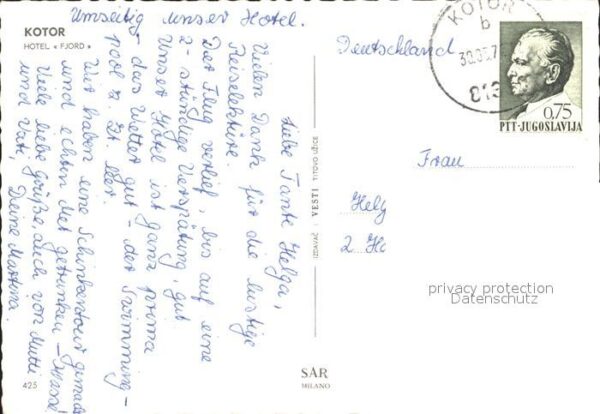 Umseitig unser Hotel.
KOTOR
HOTEL « FJORD »
Liebe Tante Helga,
Vielen Dank für die lustige
Reiselektüre.
Der Flug verlief, bis auf eine
2-stündige Verspätung, gut.
Unser Hotel ist ganz prima
das Wetter gut - der Swimming-
pool z. Zt. leer.
Wir haben eine Schinkentour gemacht
und echten Met getrunken -
Viele liebe Grüße, auch von Mutti
und Vati, Deine Martina.
425
IZDAVAČ: VESTI TITOVO UŽICE
SAR
MILANO
Deutschland
KOTOR
b
813
0,75
PTT-JUGOSLAVIJA
Frau
Helg
2 H
privacy protection
Datenschutz